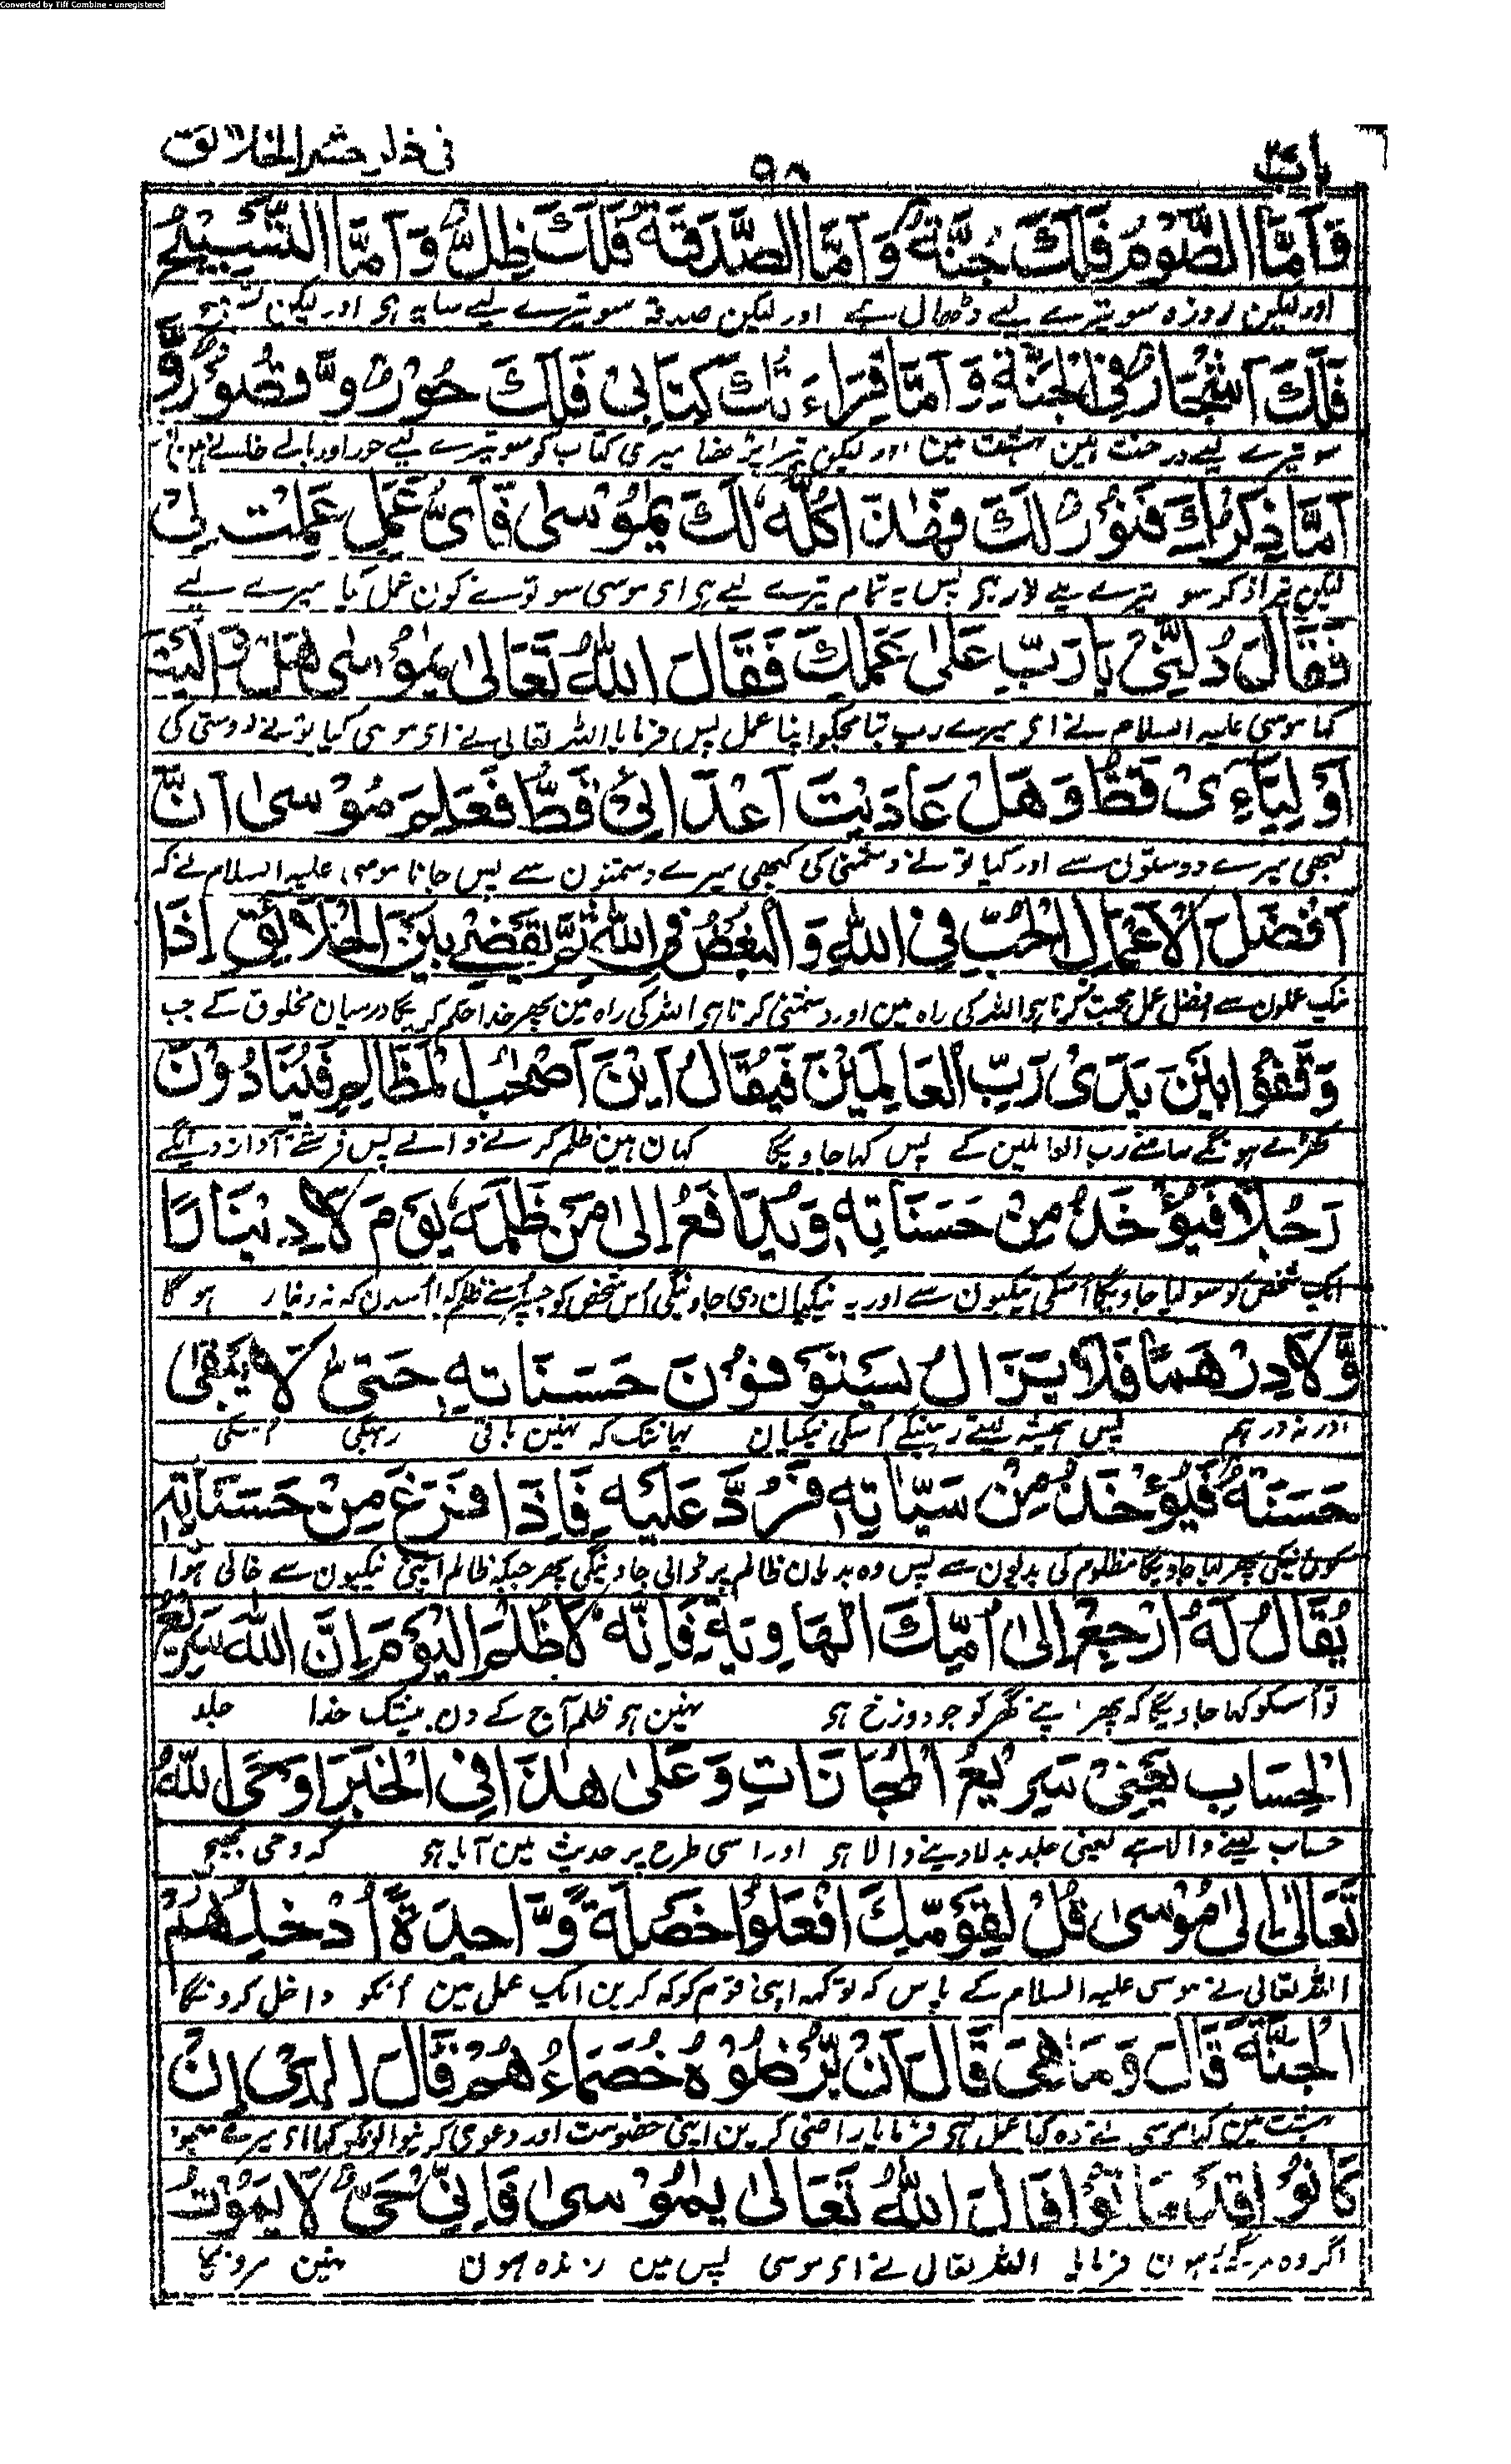 Converted by Tiff Combine - unregistered
باب
٩٨
فی ذکر حشر الخلائق
فَاَمَّا الصَّوْمُ فَلَكَ جُنَّةٌ وَاَمَّا الصَّدَقَةُ فَلَكَ ظِلٌّ وَاَمَّا التَّسْبِيْحُ
اور لیکن روزہ سو تیرے لیے ڈھال ہے اور لیکن صدقہ سو تیرے لیے سایہ ہی اور لیکن تسبیح
فَلَكَ اَشْجَارٌ فِي الْجَنَّةِ وَاَمَّا قِرَاءَتُكَ كِتَابِيْ فَلَكَ حُوْرٌ وَّقُصُوْرٌ وَّ
سو تیرے لیے درخت ہین بہشت مین اور لیکن تیرا پڑھنا میری کتاب کو سو تیرے لیے حور اور
اَمَّا ذِكْرُكَ فَنُوْرٌ لَكَ فَهٰذَا كُلُّهٗ لَكَ يٰمُوْسٰى فَاَيُّ عَمَلٍ عَمِلْتَ لِيْ
لیکن تیرا ذکر سو تیرے لیے نور ہی پس یہ تمام تیرے لیے ہی ای موسی سو تونے کون عمل کیا میرے لیے
فَقَالَ دُلَّنِيْ يَا رَبِّ عَلٰى عَمَلِكَ فَقَالَ اللّٰهُ تَعَالٰى يٰمُوْسٰى هَلْ وَالَيْتَ
کہا موسی علیہ السلام نے ای میرے رب بتا مجکو اپنا عمل پس فرمایا اللہ تعالی نے ای موسی کیا تو نے دوستی کی
اَوْلِيَاءِيْ قَطُّ وَهَلْ عَادَيْتَ اَعْدَائِيْ قَطُّ فَعَلِمَ مُوْسٰى اَنَّ
کبھی میرے دوستون سے اور کیا تو نے دشمنی کی کبھی میرے دشمنون سے پس جانا موسی علیہ السلام نے کہ
اَفْضَلَ الْاَعْمَالِ الْحُبُّ فِي اللّٰهِ وَالْبُغْضُ فِي اللّٰهِ ثُمَّ يَقْضِيْ بَيْنَ الْخَلَائِقِ اِذَا
نیک عملون سے افضل عمل محبت کرنا ہی اللہ کی راہ مین اور دشمنی کرنا ہی اللہ کی راہ مین پھر خدا حکم کریگا درمیان مخلوق کے جب
وَقَفُوْا بَيْنَ يَدَيْ رَبِّ الْعَالَمِيْنَ فَيُقَالُ اَيْنَ اَصْحٰبُ الْمَظَالِمِ فَيُنَادُوْنَ
کھڑے ہونگے سامنے رب العالمین کے پس کہا جاویگا کہان ہین ظلم کرنے والے پس فرشتے آواز دینگے
رَجُلًا فَيُؤْخَذُ مِنْ حَسَنَاتِهٖ وَيُدَافَعُ اِلٰى مَنْ ظَلَمَهٗ يَوْمَ لَا دِيْنَارًا
ایک شخص کو سو لیا جاویگا اسکی نیکیون سے اور یہ نیکیان دی جاوینگی اس شخص کو جسپر اسنے ظلم کیا اسدن کہ نہ دینار ہوگا
وَّلَا دِرْهَمًا فَلَا يَزَالُ يَسْتَوْفُوْنَ حَسَنَاتِهٖ حَتّٰى لَا يَبْقٰى
اور نہ درہم پس ہمیشہ لیتے رہینگے اسکی نیکیان یہانتک کہ نہین باقی رہیگی اسکی
حَسَنَةٌ فَيُؤْخَذُ مِنْ سَيِّاٰتِهٖ فَرُدَّ عَلَيْهِ فَاِذَا فَرَغَ مِنْ حَسَنَاتِهٖ
کوئی نیکی پھر لیا جاویگا مظلوم کی بدیون سے پس وہ بدیان ظالم پر ڈالی جاوینگی پھر جبکہ ظالم اپنی نیکیون سے خالی ہوا
يُقَالُ لَهُ ارْجِعْ اِلٰى اُمِّكَ الْهَاوِيَةِ فَاِنَّهٗ لَا ظُلْمَ الْيَوْمَ اِنَّ اللّٰهَ سَرِيْعُ
تو اسکو کہا جاویگا کہ پھر اپنے گھر کو جو دوزخ ہی نہین ہی ظلم آج کے دن بیشک خدا جلد
الْحِسَابِ يَعْنِيْ سَرِيْعُ الْمُجَازَاتِ وَعَلٰى هٰذَا فِي الْخَبَرِ اَوْحَى اللّٰهُ
حساب لینے والا ہے یعنی جلد بدلا دینے والا ہی اور اسی طرح پر حدیث مین آیا ہی کہ وحی بھیجی
تَعَالٰى اِلٰى مُوْسٰى قُلْ لِقَوْمِكَ افْعَلُوْا خَصْلَةً وَّاحِدَةً اُدْخِلُهُمْ
اللہ تعالی نے موسی علیہ السلام کے پاس کہ تو کہہ اپنی قوم کو کہ کرین ایک عمل مین انکو داخل کرونگا
الْجَنَّةَ قَالَ وَمَا هِيَ قَالَ اَنْ يُّرْضُوْا خُصَمَاءَهُمْ قَالَ اِلٰهِيْ اِنْ
بہشت مین کہا موسی نے وہ کیا عمل ہی فرمایا راضی کرین اپنی خصومت اور دعوی کرنیوالونکو کہا ای میرے
كَانُوْا قَدْ مَاتُوْا قَالَ اللّٰهُ تَعَالٰى يٰمُوْسٰى فَاِنِّيْ حَيٌّ لَا يَمُوْتُ
اگر وہ مرگئے ہون فرمایا اللہ تعالی نے ای موسی پس مین زندہ ہون نہین مرونگا